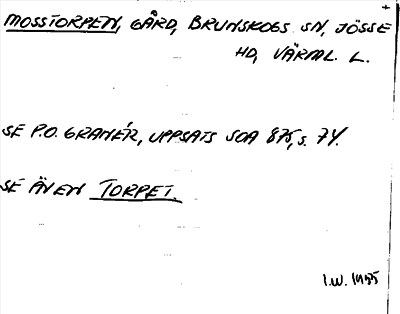 MOSSTORPEN, GÅRD, BRUNSKOGS SN, JÖSSE
HD, VÄRML. L.
SE P.O. GRANÉR, UPPSATS SOA 875, S. 74.
SE ÄVEN TORPET.
I.W. 1955